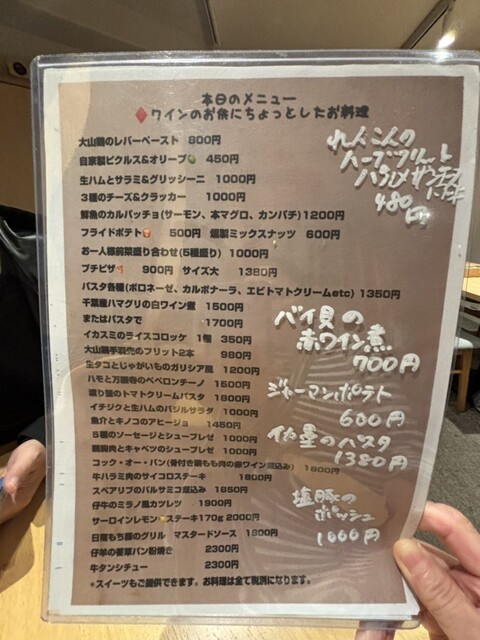 本日のメニュー
ワインのお供にちょっとしたお料理
大山鶏のレバーペースト 800円
自家製ピクルス&オリーブ 450円
生ハムとサラミ&グリッシーニ 1000円
3種のチーズ&クラッカー 1000円
鮮魚のカルパッチョ(サーモン、本マグロ、カンパチ)1200円
フライドポテト 500円 燻製ミックスナッツ 600円
お一人様前菜盛り合わせ(5種盛り) 1000円
プチピザ 900円 サイズ大 1380円
パスタ各種(ボロネーゼ、カルボナーラ、エビトマトクリームetc) 1350円
千葉産ハマグリの白ワイン煮 1500円
またはパスタで 1700円
イカスミのライスコロッケ 1個 350円
大山鶏手羽先のフリット2本 980円
生タコとじゃがいものガリシア風 1200円
ハモと万願寺のペペロンチーノ 1500円
渡り蟹のトマトクリームパスタ 1800円
イチジクと生ハムのバジルサラダ 1000円
魚介とキノコのアヒージョ 1450円
5種のソーセージとシュープレゼ 1000円
鶏胸肉とキャベツのシュープレゼ 1000円
コック・オー・バン(骨付き鶏もも肉の赤ワイン煮込み) 1800円
牛ハラミ肉のサイコロステーキ 1800円
スペアリブのバルサミコ煮込み 1650円
仔牛のミラノ風カツレツ 1900円
サーロインレモンステーキ170g 2000円
日南もち豚のグリル マスタードソース 1800円
仔羊の香草パン粉焼き 2300円
牛タンシチュー 2300円
*スイーツもご提供できます。お料理は全て税別になります。
れんこんの
ハーブフリット
パルメザンチーズ
480円
バイ貝の
赤ワイン煮
700円
ジャーマンポテト
600円
パスタ
1380円
塩豚の
ポッシュ
1000円